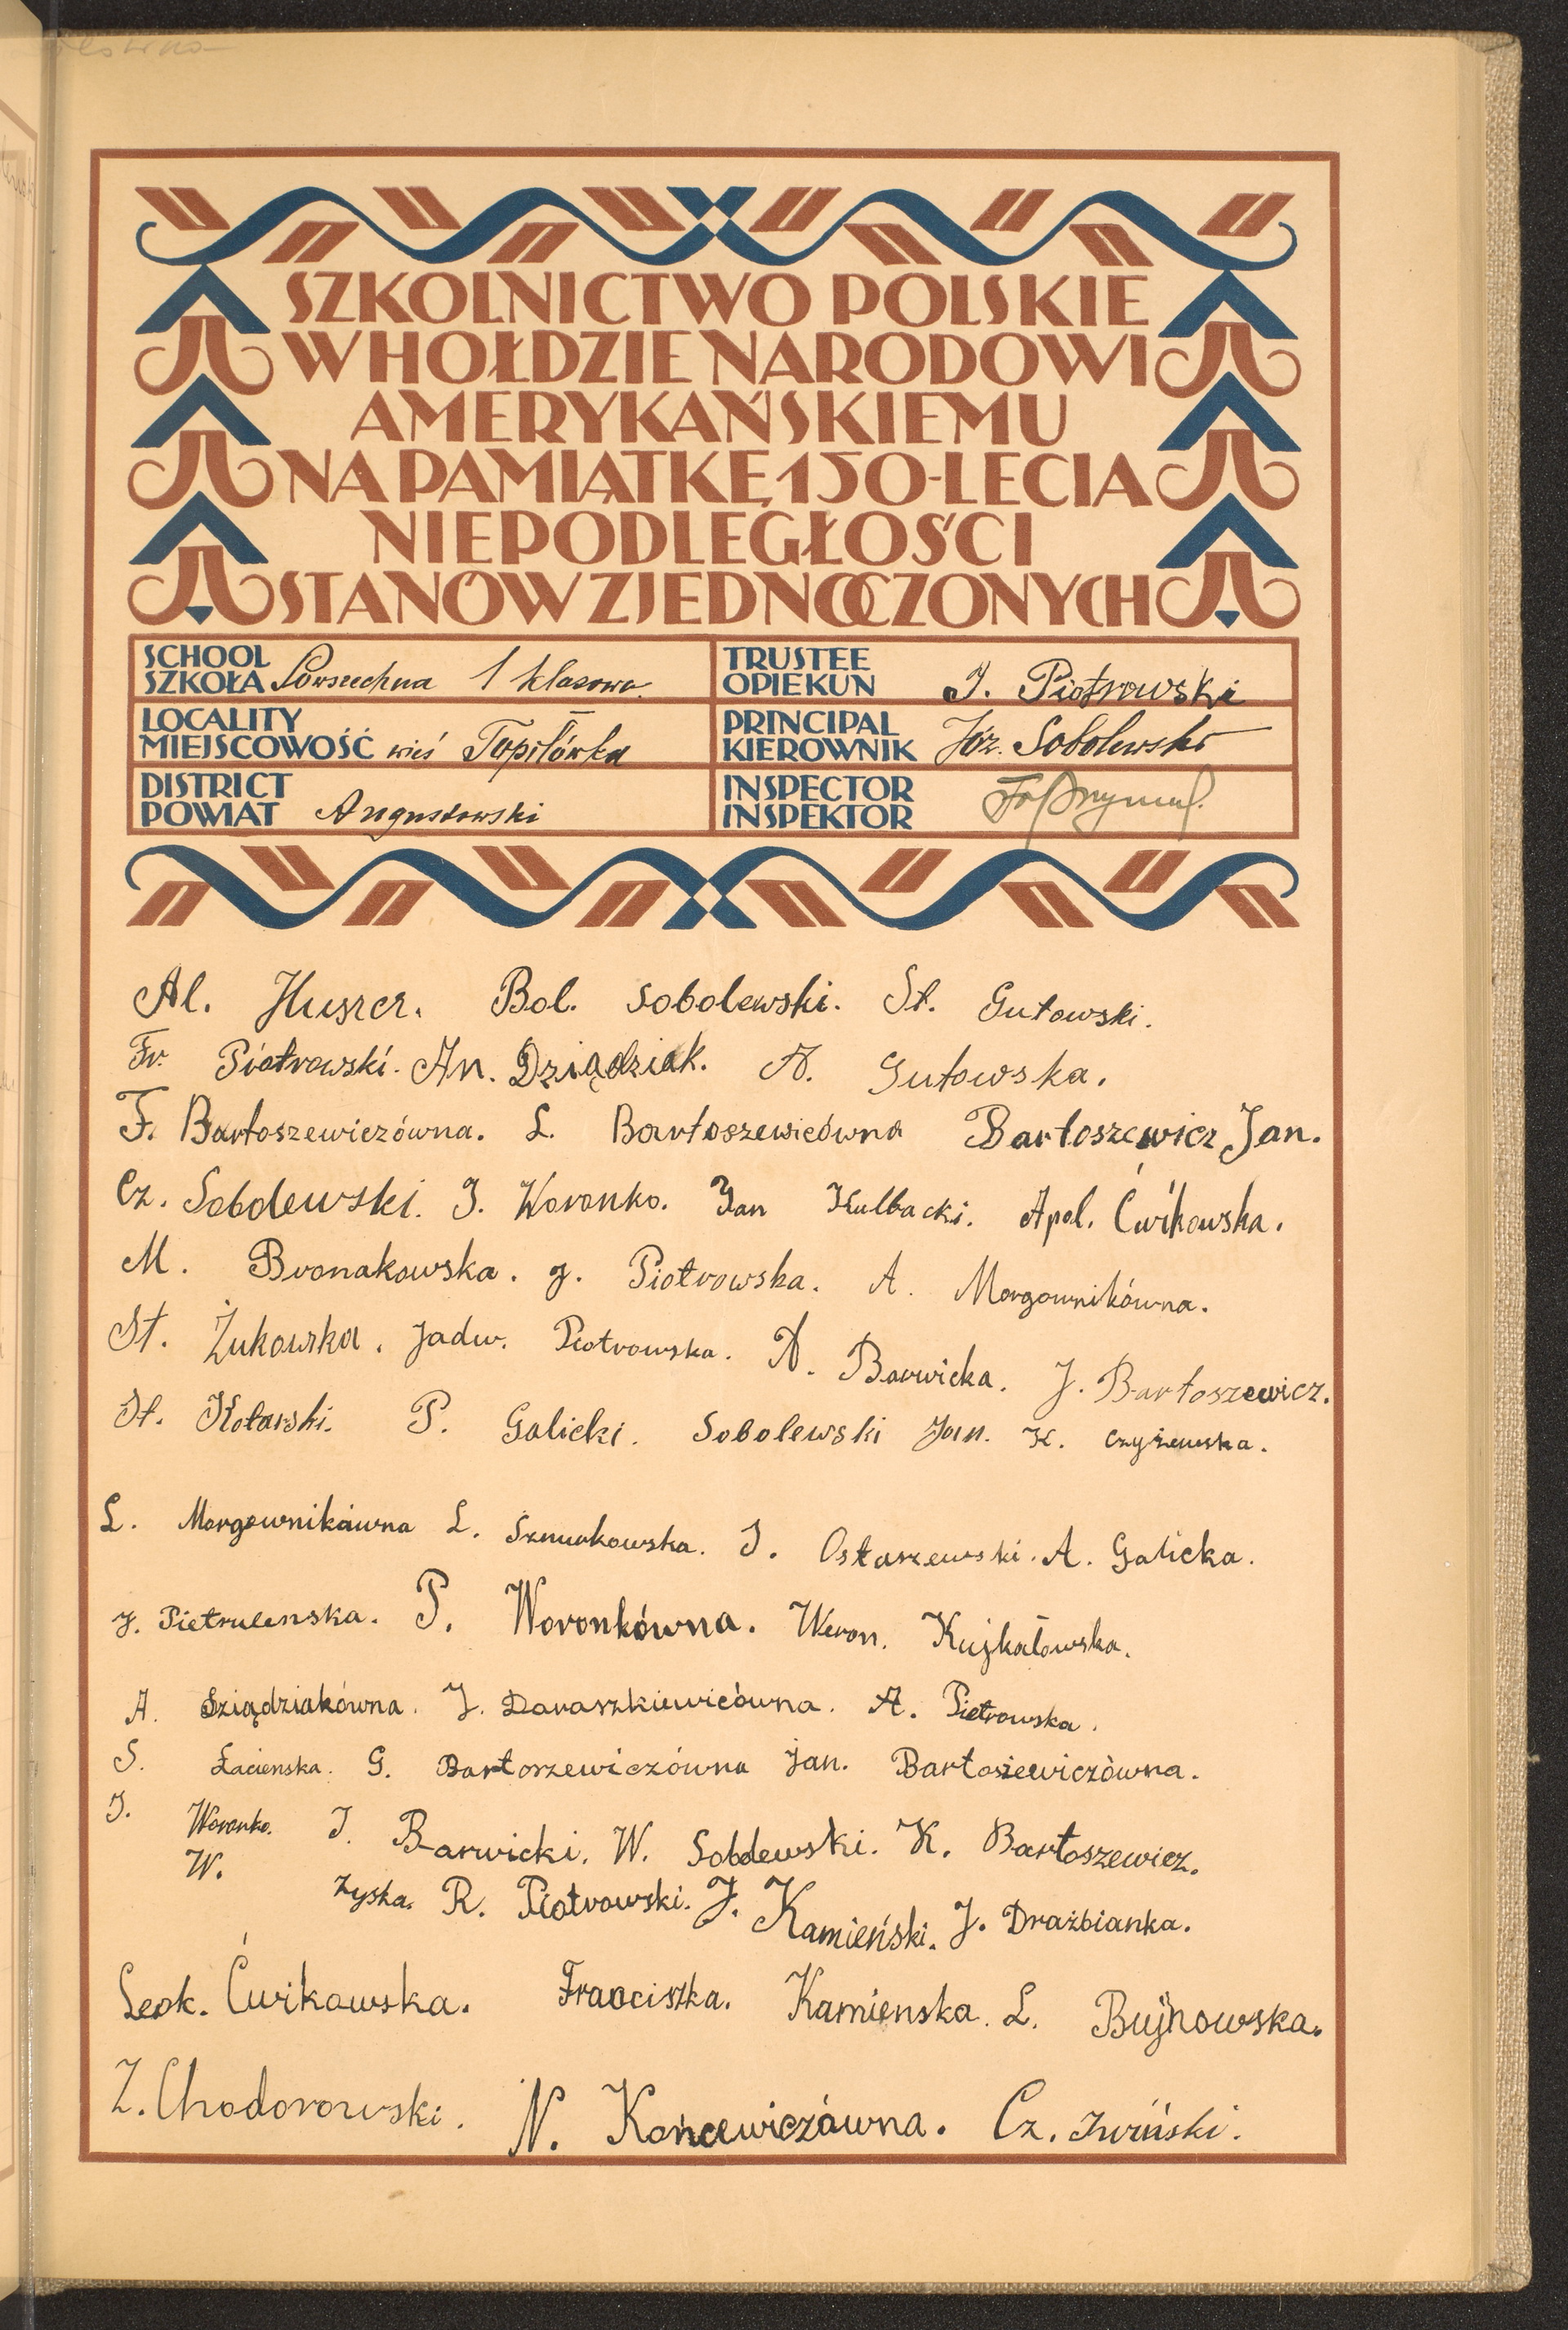 SZKOLNICTWO POLSKIE
W HOŁDZIE NARODOWI
AMERYKAŃSKIEMU
NA PAMIĄTKĘ 150-LECIA
NIEPODLEGŁOŚCI
STANÓW ZJEDNOCZONYCH
SCHOOL
SZKOŁA Powszechna 1 klasowa
TRUSTEE
OPIEKUN J. Piotrowski
LOCALITY
MIEJSCOWOŚĆ wieś Topiłówka
PRINCIPAL
KIEROWNIK Józ. Sobolewski
DISTRICT
POWIAT Augustowski
INSPECTOR
INSPEKTOR
Al. Huszcz. Bol. Sobolewski. St. Gutowski.
Fr. Piotrowski. An. Dziądziak. A. Gutowska.
F. Bartoszewiczówna. L. Bartoszewicówna Bartoszewicz Jan.
Cz. Sobolewski. J. Woronko. Jan Kulbacki. Apol. Ćwikowska.
M. Bronakowska. J. Piotrowska. A. Morgownikówna.
St. Żukowska. Jadw. Piotrowska. A. Barwicka. J. Bartoszewicz.
St. Kotarski. P. Galicki. Sobolewski Jan. K. Czyżewska.
L. Morgownikówna L. Szmurkowska. J. Ostaszewski. A. Galicka.
J. Pietrulenska. P. Woronkówna. Weron. Kujkałowska.
A. Dziądziakówna. J. Daraszkiewicówna. A. Pietrowska.
S. Łacienska. G. Bartoszewiczówna Jan. Bartosiewiczówna.
J. Woronko. J. Barwicki. W. Sobolewski. K. Bartoszewicz.
W. Zyska. R. Piotrowski. J. Kamieński. J. Drażbianka.
Leok. Ćwikowska. Franciszka. Kamienska. L. Bujnowska.
Z. Chodorowski. N. Koncewiczówna. Cz. Iwiński.